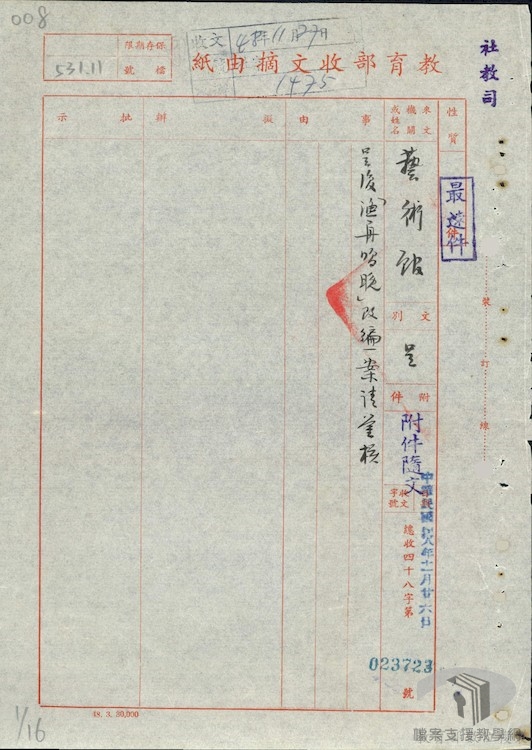 008
保存期限
檔號
531.11
收文
48年11月27日
1475
教育部收文摘由紙
社教司
性質
最速件
來文機關或姓名
藝術館
文別
呈
附件
附件隨文
收文字號
中華民國四八年十一月廿六日
總收四十八字第
023723
號
事由
呈復「漁舟唱晚」改編一案請鑒核
擬辦
批示
裝訂線
48. 3. 30,000
1/16
檔案支援教學網